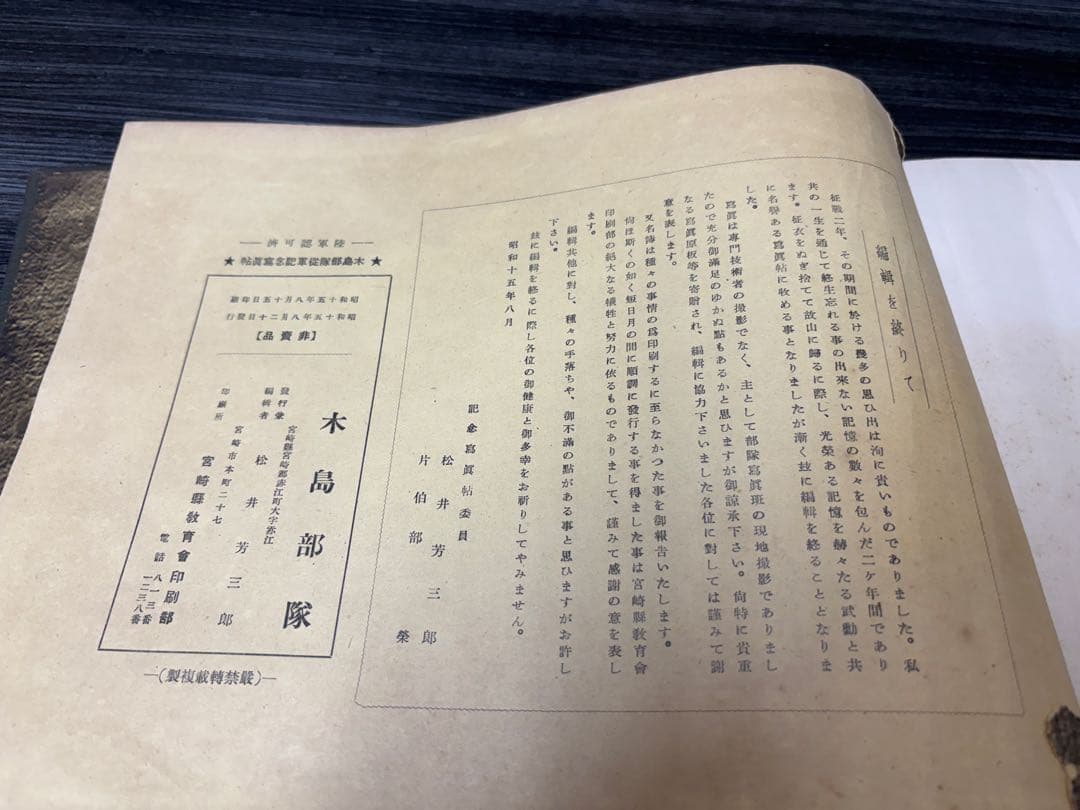 編輯を終りて
征戰二年、その期間に於ける幾多の思ひ出は洵に貴いものでありました。私
共の一生を通じて終生忘れる事の出來ない記憶の數々を包んだ二ケ年間であり
ます。征衣をぬぎ捨てて故山に歸るに際し、光榮ある記憶を赫々たる武勳と共
に名譽ある寫眞帖に收める事となりましたが漸く玆に編輯を終ることとなりま
した。
寫眞は專門技術者の撮影でなく、主として部隊寫眞班の現地撮影でありまし
たので充分御滿足のゆかぬ點もあるかと思ひますが御諒承下さい。尙特に貴重
なる寫眞原板等を寄贈され、編輯に協力下さいました各位に對しては謹みて謝
意を表します。
又名簿は種々の事情の爲印刷するに至らなかつた事を御報告いたします。
尙ほ斯くの如く短日月の間に順調に發行する事を得ました事は宮崎縣敎育會
印刷部の絕大なる犧牲と努力に依るものでありまして、謹みて感謝の意を表し
ます。
編輯其他に對し、種々の手落ちや、御不滿の點がある事と思ひますがお許し
下さい。
玆に編輯を終るに際し各位の御健康と御多幸をお祈りしてやみません。
昭和十五年八月
記念寫眞帖委員
松井芳三郎
片伯部榮
陸軍認可濟
★木島部隊從軍記念寫眞帖★
昭和十五年八月十五日印刷
昭和十五年八月二十日發行
【非賣品】
木島部隊
宮崎縣宮崎郡赤江町大字赤江
發行兼編輯者 松井芳三郎
宮崎市本町二十七
印刷所 宮崎縣敎育會印刷部
電話 八一三番
一二三八番
(嚴禁轉載複製)